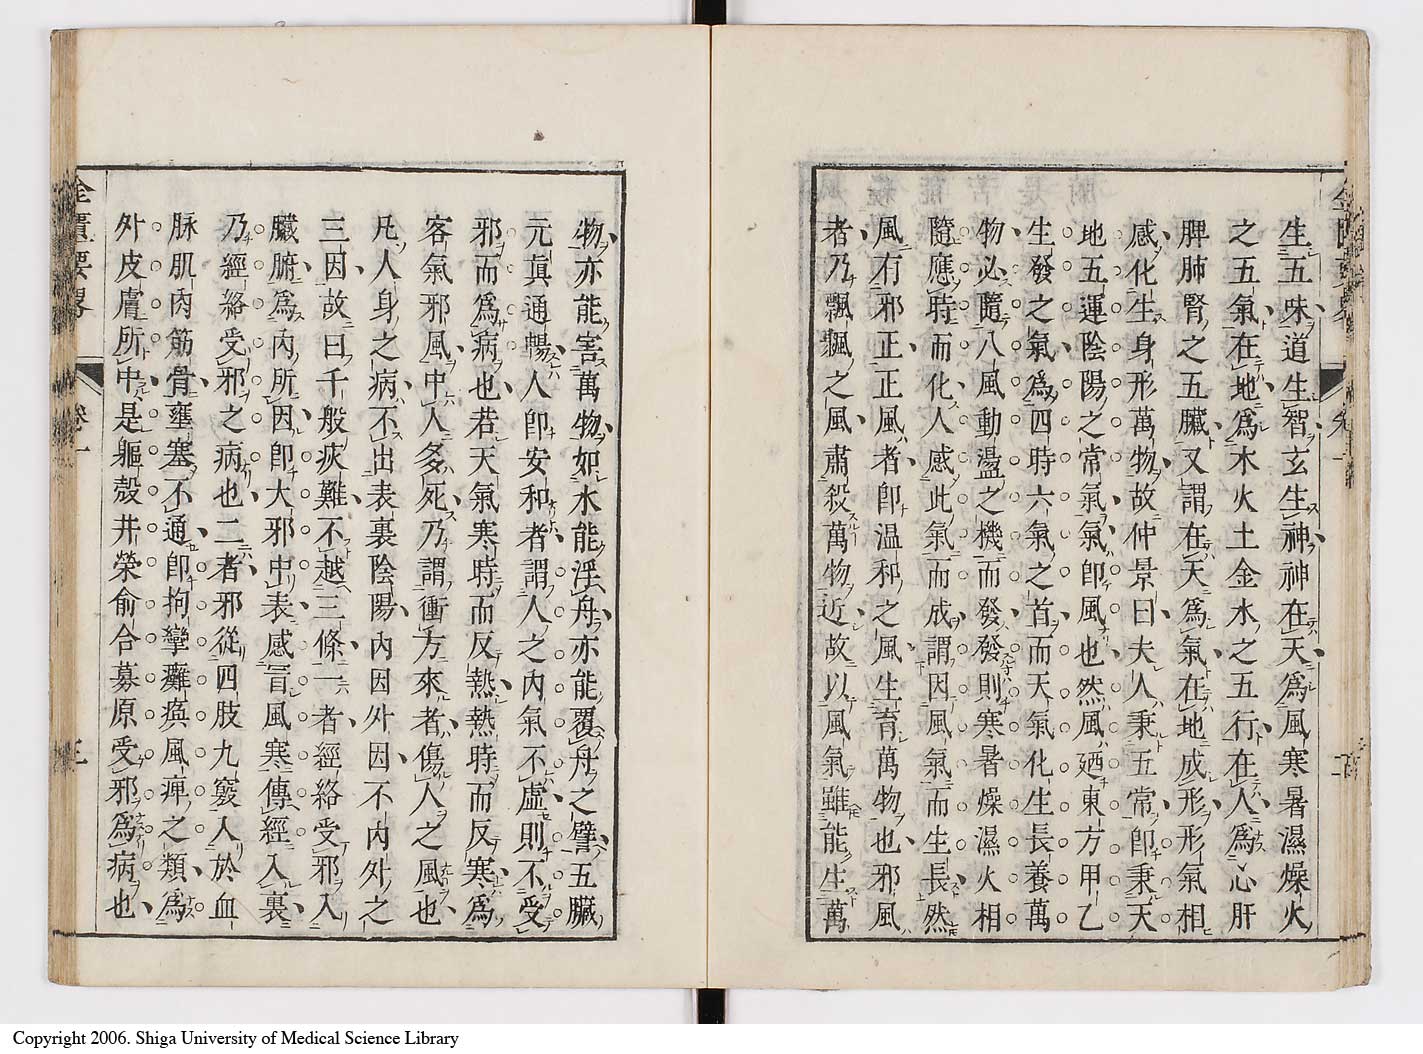 生五味道生智玄生神神在天爲風寒暑濕燥火
之五氣在地爲木火土金水之五行在人爲心肝
脾肺腎之五臟又謂在天爲氣在地成形形氣相
感化生身形萬物故仲景曰夫人秉五常卽秉天
地五運陰陽之常氣氣卽風也然風廼東方甲乙
生發之氣爲四時六氣之首而天氣化生長養萬
物必隨八風動盪之機而發發則寒暑燥濕火相
隨應時而化人感此氣而成謂因風氣而生長然
風有邪正正風者卽溫和之風生育萬物也邪風
者乃飄飄之風肅殺萬物近故以風氣雖能生萬
物亦能害萬物如水能浮舟亦能覆舟之譬五臟
元眞通暢人卽安和者謂人之內氣不虛則不受
邪而爲病也若天氣寒時而反熱熱時而反寒爲
客氣邪風中人多死乃謂衝方來者傷人之風也
凡人身之病不出表裏陰陽內因外因不內外之
三因故曰千般疢難不越三條一者經絡受邪入
臟腑爲內所因卽大邪中表感冒風寒傳經入裏
乃經絡受邪之病也二者邪從四肢九竅人於血
脉肌肉筋骨壅塞不通卽拘攣癱瘓風痺之類爲
外皮膚所中是軀殼井榮俞合募原受邪爲病也
金匱要畧
卷一
三
Copyright 2006. Shiga University of Medical Science Library